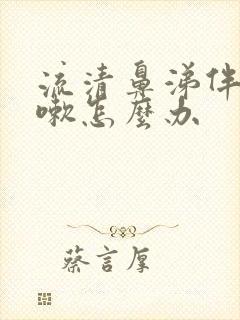 流清鼻涕伴
嗽怎麼办
蔡言厚